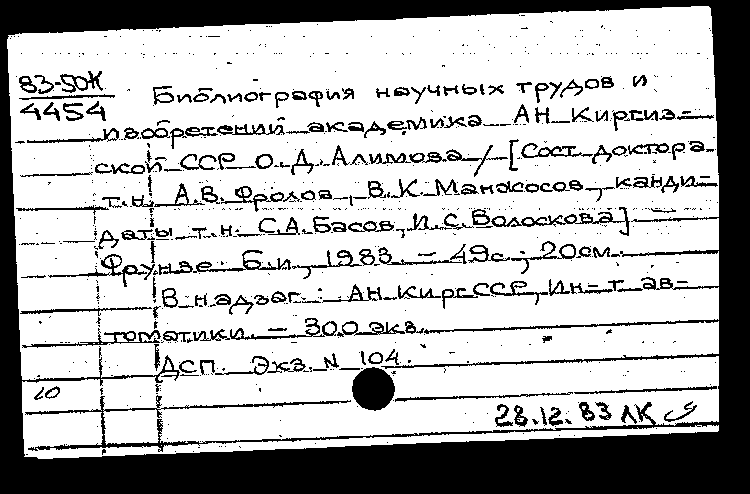 83-50К
4454
Библиография научных трудов и
изобретений академика АН Киргиз=
ской ССР О.Д. Алимова / [Сост. доктора
т.н. А.В. Фролов, В.К. Манжосов, канди=
даты т.н. С.А. Басов, И.С. Волоскова]. –
Фрунзе: Б.и, 1983. – 49с.; 20см.
В надзаг.: АН КиргССР, Ин-т ав=
томатики. – 300 экз.
ДСП. Экз. N 104.
10
28.12.83 ЛК